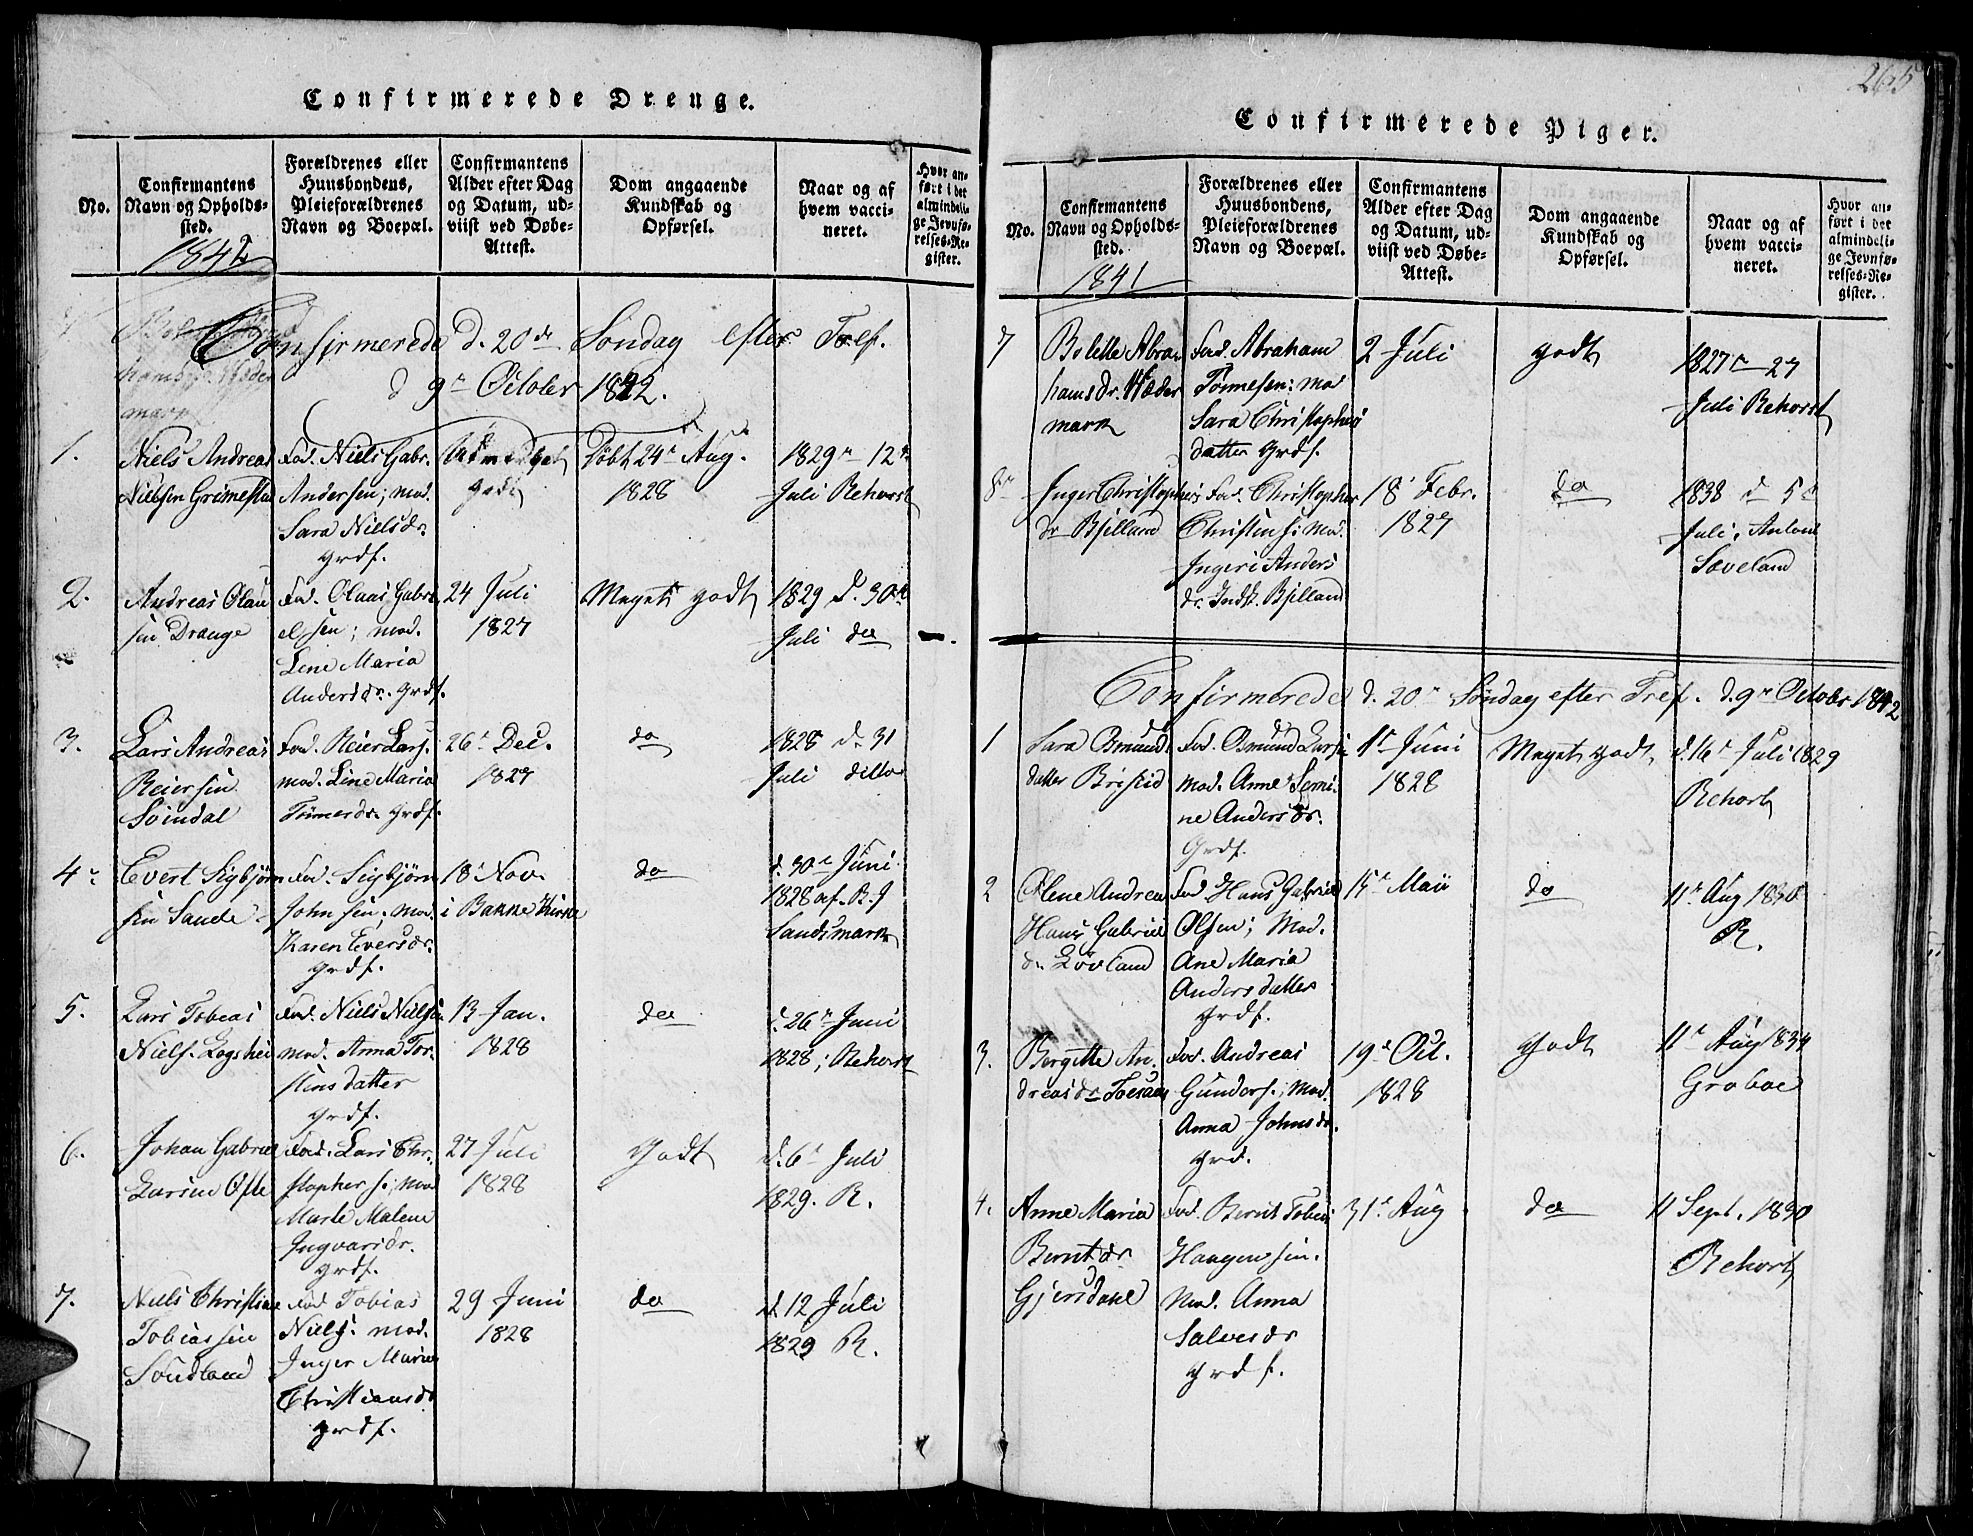 Confirmerede Drenge.
No.
Confirmantens
Navn og Opholds-
sted.
1842
Forældrenes eller
Huusbondens,
Pleieforældrenes
Navn og Boepæl.
Confirmantens
Alder efter Dag
og Datum, ud-
viist ved Døbe-
Attest.
Dom angaaende
Kundskab og
Opførsel.
Naar og af
hvem vacci-
neret.
Hvor an-
ført i det
almindeli-
ge Jevnfø-
relses-Re-
gister.
Confirmerede d. 20de Søndag efter Tref.
d 9r October 1842.
1.
Niels Andreas
Nielsen Grimestad
Fad. Niels Gabr.
Andersen; mod.
Sara Nielsdr.
grdf.
godt
Døbt 24r Aug.
1828
1829 12
Juli Rehorst
2.
Andreas Olau
sen Drange
Fad. Olaas Gabri
elsen; mod.
Line Maria
Andersdr. grdf.
24 Juli
1827
Meget godt
1829 d. 30
Juli do
3.
Lars Andreas
Reiersen
Soindal
Fad. Reier Lars.
mod. Line Maria
Tømerdr. grdf.
26r Dec.
1827
do
1828 d. 31
Juli ditto
4
Evert Sigbjørn
sen Sande
Fad. Sigbjørn
Johnsen; mod.
Karen Eversdr.
grdf.
18 Nov.
i Bakke Kirke
do
d. 30 Juni
1828 af R. J
Sandsmark
5.
Lars Tobias
Niels. Logshei
Fad. Niels Nielsen
mod. Anna Tor-
stens datter
grdf.
13 Jan.
1828
do
d. 26 Juni
1828; Rehorst
6.
Johan Gabriel
Larsen Ofte
Fad. Lars Chr.
stophers.; mod
Marte Malene
Ingvarsdr.
grdf.
27 Juli
1828
godt
d. 6 Juli
1829. R.
7.
Niels Christian
Tobiassen
Sondland
Fad Tobias
Niels. mod.
Inger Maria
Christiansdr
grdf.
29 Juni
1828
do
d. 12 Juli
1829 R.
265
Confirmerede Piger.
No.
Confirmantens
Navn og Opholds-
sted.
1841
Forældrenes eller
Huusbondens,
Pleieforældrenes
Navn og Boepæl.
Confirmantens
Alder efter Dag
og Datum, ud-
viist ved Døbe-
Attest.
Dom angaaende
Kundskab og
Opførsel.
Naar og af
hvem vacci-
neret.
Hvor an-
ført i det
almindeli-
ge Jevnfø-
relses-Re-
gister.
7
Bolette Abra
hamsdr. Hæder
mark
Fad. Abraham
Tønnesen: mod
Sara Christophers
datter grdf.
2 Juli
godt
1827 27
Juli Rehorst
8
Inger Christophers
dr Bjelland
Fad. Christopher
Christens; mod.
Ingeri Anders
dr. Indst. Bjelland
18 Febr.
1827
do
1838 d 5
Juli, Anton
Soveland
Confirmerede d. 20 Søndag efter Tref. d. 9r October 1842
1
Sara Osmund
datter Briseid
Fad. Osmund Larsen
mod. Anne Semi
ne Andersdr.
Grdf.
1r Juni
1828
Meget godt
d. 16r Juli 1829
Rehorst
2
Olene Andrea
Hans Gabriel
dr Lövland
Fad Hans Gabriel
Olsen; Mod.
Ane Maria
Andersdatter
grdf.
15 Maii
do
11 Aug 1830
R.
3.
Bergitte An.
dreasdr
Fad. Andreas
Gunders.; mod.
Anna Johnsdr.
grd.
19 Oct.
1828
godt
11 Aug 1834
Graboe
4.
Anne Maria
Berntdr
Gjersdahl
Fad. Bernt Tobias
Haagensen.
Mod. Anna
Salvesdr
grdf.
31 Aug
do
11 Sept. 1830
Rehorst